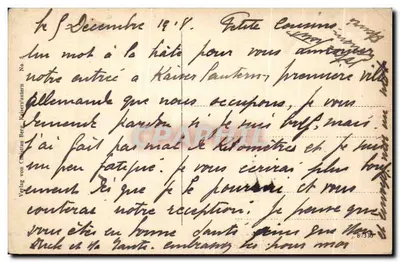 le 5 Décembre 1918. Petite Cousine
Un mot à la hâte pour vous annoncer
notre entrée à Kaiserslautern, première ville
allemande que nous occupons, je vous
demande pardon si je suis bref, mais
j'ai fait pas mal de kilomètres et je suis
un peu fatigué. je vous écrirai plus longue
ment dès que je le pourrai et vous
conterai notre réception. Je pense que
vous êtes en bonne santé ainsi que Mon
Oncle et Ma Tante. embrassez les pour moi
et envoyez moi
Verlag von Christian Berg, Kaiserslautern No
CPARAMA